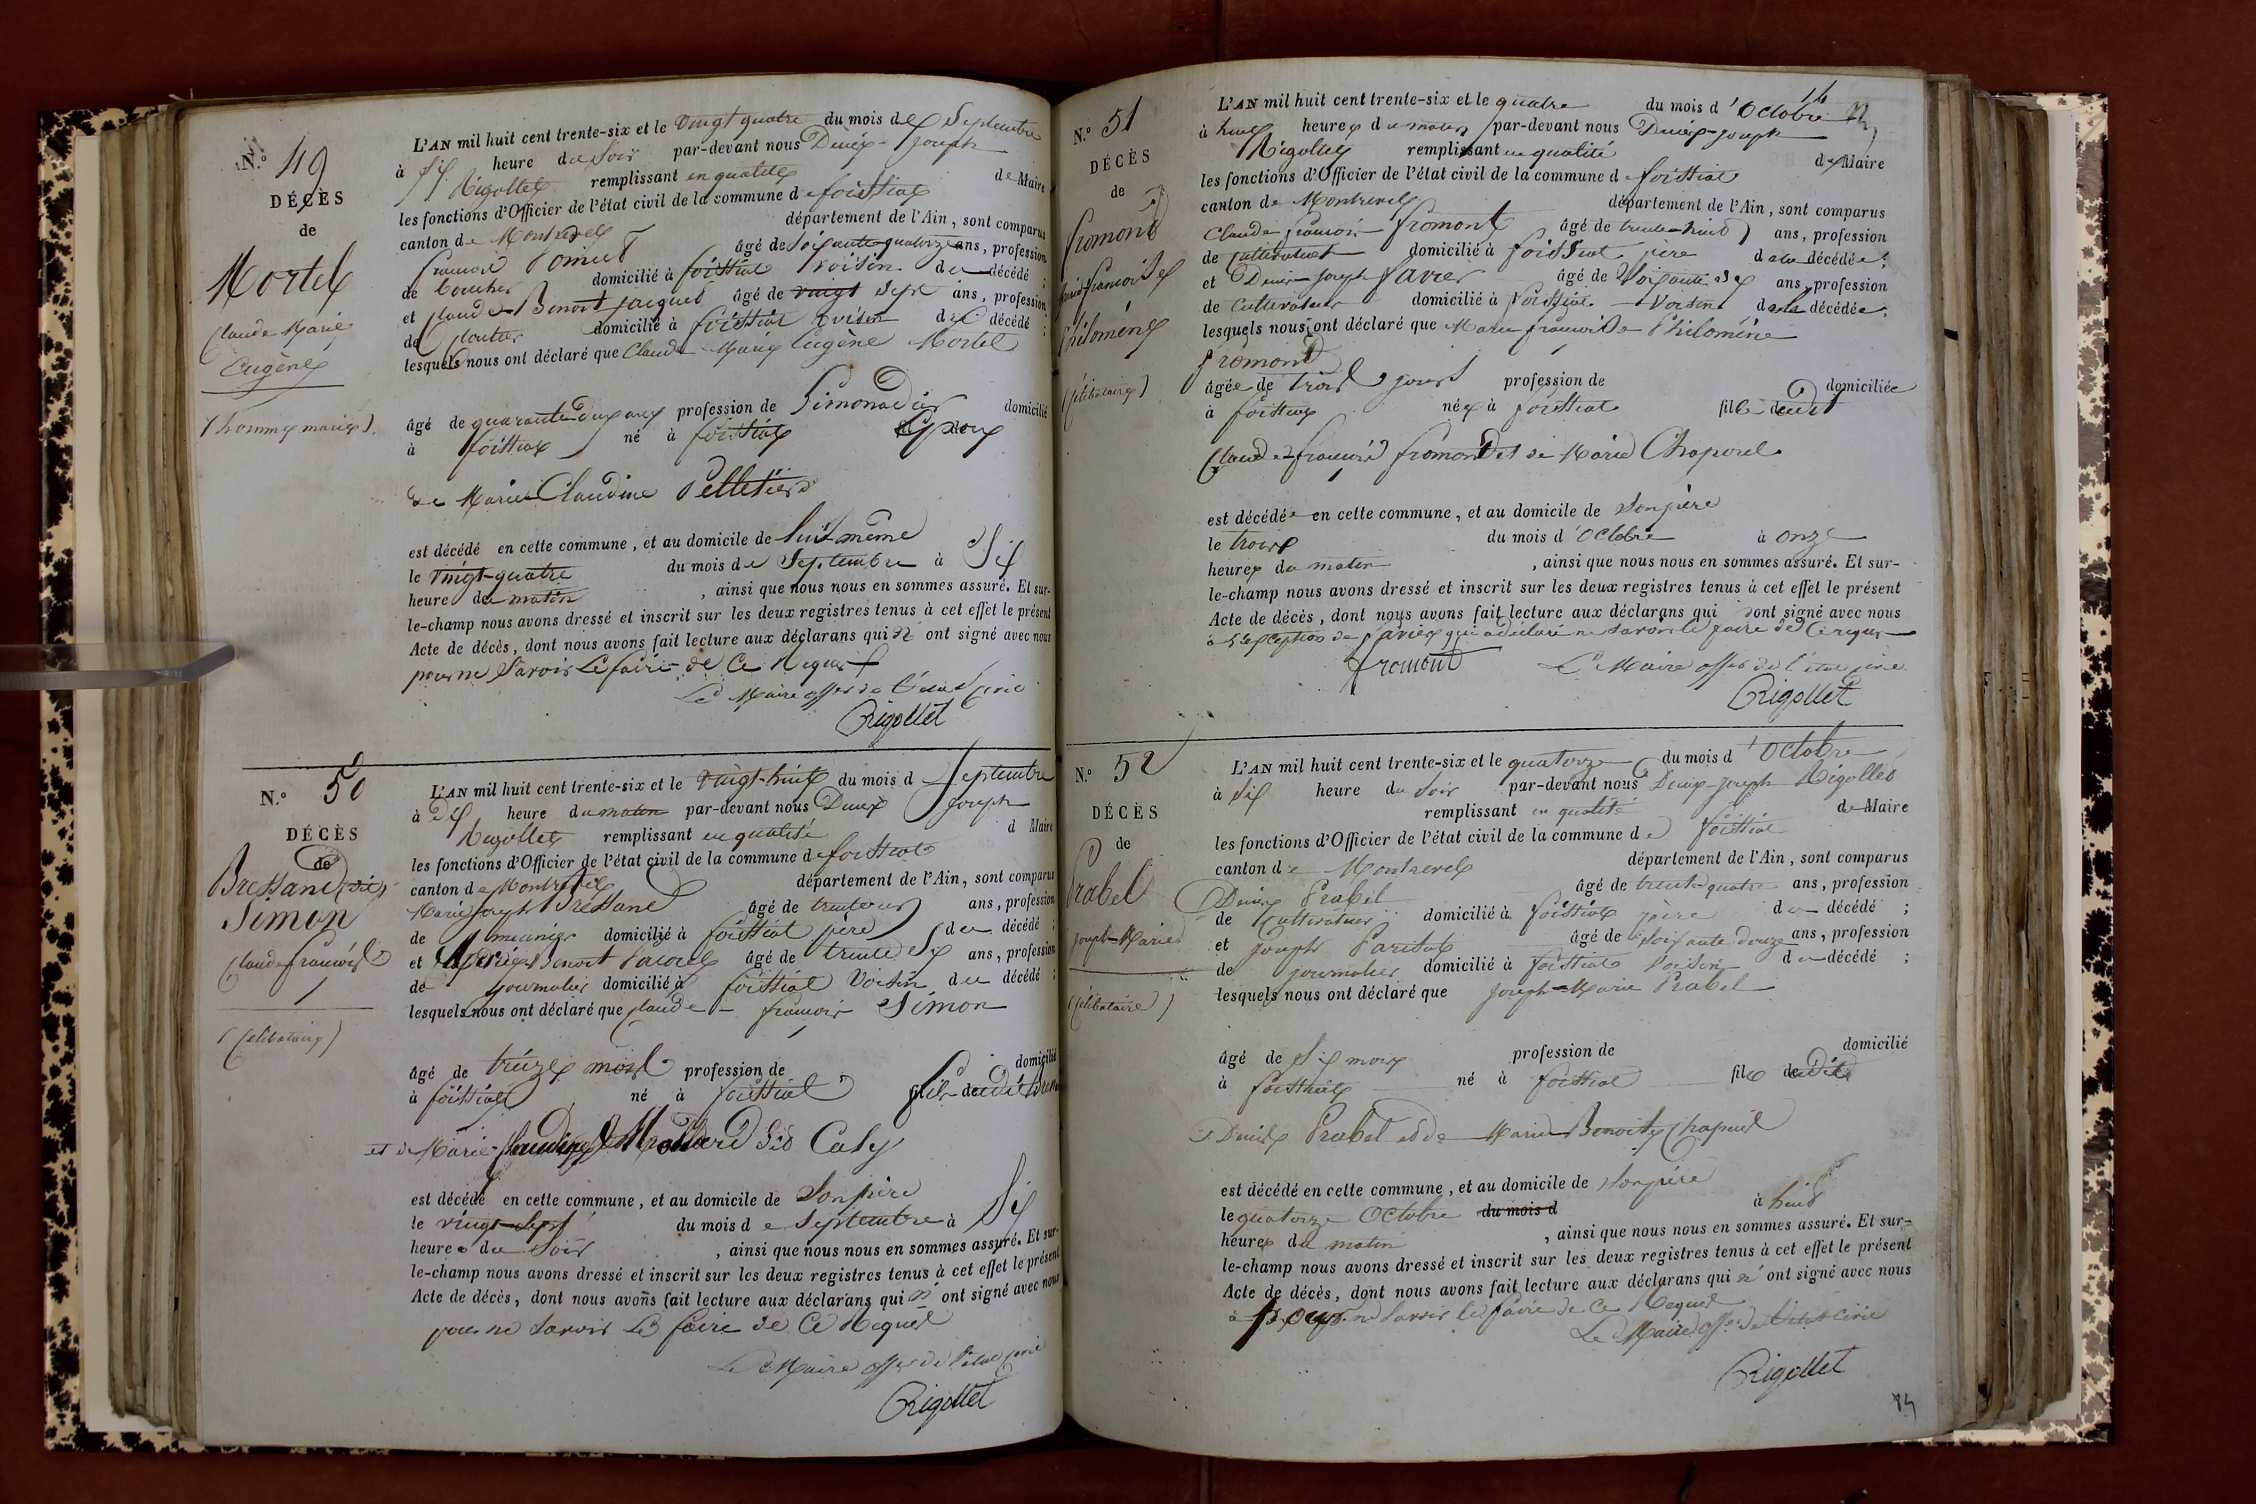 N.º 49
DÉCÈS
de
Mortel
Claude Marie
Eugène
(homme marié).
L'AN mil huit cent trente-six et le vingt quatre du mois de Septembre
à six heure du Soir par-devant nous Denis-Joseph
Rigollet remplissant en qualité de Maire
les fonctions d'Officier de l'état civil de la commune de foissiat
canton de Montrevel département de l'Ain, sont comparus
françois âgé de Soixante quatorze ans, profession
de domicilié à foissiat voisin du décédé ;
et Claude-Benoit Jacquet âgé de vingt Sept ans, profession
de domicilié à foissiat voisin du décédé ;
lesquels nous ont déclaré que Claude Marie Eugène Mortel
âgé de quarante deux ans profession de Limonadier domicilié
à foissiat né à foissiat Epoux
de Marie Claudine Pelletier
est décédé en cette commune, et au domicile de lui-même
le vingt-quatre du mois de Septembre à Six
heure du matin , ainsi que nous nous en sommes assuré. Et sur-
le-champ nous avons dressé et inscrit sur les deux registres tenus à cet effet le présent
Acte de décès, dont nous avons fait lecture aux déclarans qui n' ont signé avec nous
pour ne Savoir Le faire de Ce Requis
Le Maire offer de l'état Civil
Rigollet
N.º 50
DÉCÈS
de
Bressand dit
Simon
Claude françois
(Celibataire)
L'AN mil huit cent trente-six et le vingt-huit du mois d Septembre
à dix heure du matin par-devant nous Denis Joseph
Rigollet remplissant en qualité d Maire
les fonctions d'Officier de l'état civil de la commune de foissiat
canton de Montrevel département de l'Ain, sont comparus
Marie Joseph Bressand âgé de trente ans, profession
de meunier domicilié à foissiat père du décédé ;
et Benoit âgé de trente Six ans, profession
de journalier domicilié à foissiat Voisin du décédé ;
lesquels nous ont déclaré que Claude-françois Simon
âgé de treize mois profession de domicilié
à foissiat né à foissiat fils dudit
et de Marie Claudine dit Caly
est décédé en cette commune, et au domicile de Son père
le vingt-Sept du mois de Septembre à Six
heure du Soir , ainsi que nous nous en sommes assuré. Et sur-
le-champ nous avons dressé et inscrit sur les deux registres tenus à cet effet le présent
Acte de décès, dont nous avons fait lecture aux déclarans qui n' ont signé avec nous
pour ne Savoir Le faire de Ce Requis
Le Maire offer de l'état Civil
Rigollet
N.º 51
DÉCÈS
de
fromont
Marie françoise
Philomène
(Celibataire)
L'AN mil huit cent trente-six et le quatre du mois d'Octobre
à huit heures du matin par-devant nous Denis-Joseph
Rigollet remplissant en qualité de Maire
les fonctions d'Officier de l'état civil de la commune de foissiat
canton de Montrevel département de l'Ain, sont comparus
Claude françois fromont âgé de trente-huit ans, profession
de cultivateur domicilié à foissiat père de la décédée ;
et Denis-Joseph favier âgé de Soixante dix ans, profession
de Cultivateur domicilié à foissiat Voisin de la décédée ;
lesquels nous ont déclaré que Marie françoise Philomène
fromont
âgée de trois jours profession de domiciliée
à foissiat née à foissiat fille dudit
Claude-françois fromont et de Marie Chaparel
est décédée en cette commune, et au domicile de Son père
le trois du mois d'Octobre à onze
heures du matin , ainsi que nous nous en sommes assuré. Et sur-
le-champ nous avons dressé et inscrit sur les deux registres tenus à cet effet le présent
Acte de décès, dont nous avons fait lecture aux déclarans qui ont signé avec nous
à l'exception de favier qui a déclaré ne Savoir le faire de Ce requis
fromont Le Maire offer de l'état Civil
Rigollet
N.º 52
DÉCÈS
de
Prabel
Joseph-Marie
(Célibataire)
L'AN mil huit cent trente-six et le quatorze du mois d'Octobre
à Six heure du Soir par-devant nous Denis-Joseph Rigollet
remplissant en qualité de Maire
les fonctions d'Officier de l'état civil de la commune de foissiat
canton de Montrevel département de l'Ain, sont comparus
Denis Prabel âgé de trente quatre ans, profession
de Cultivateur domicilié à foissiat père du décédé ;
et Joseph âgé de Soixante douze ans, profession
de journalier domicilié à foissiat Voisin du décédé ;
lesquels nous ont déclaré que Joseph-Marie Prabel
âgé de Six mois profession de domicilié
à foissiat né à foissiat fils dudit
Denis Prabel et de Marie Benoite Chapuis
est décédé en cette commune, et au domicile de Son père
le quatorze Octobre du mois d à huit
heures du matin , ainsi que nous nous en sommes assuré. Et sur-
le-champ nous avons dressé et inscrit sur les deux registres tenus à cet effet le présent
Acte de décès, dont nous avons fait lecture aux déclarans qui n' ont signé avec nous
pour ne Savoir le faire de Ce Requis
Le Maire offer de l'état Civil
Rigollet